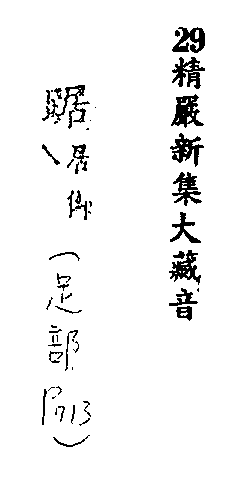 29精嚴新集大藏音
踞、居御（足部P713）